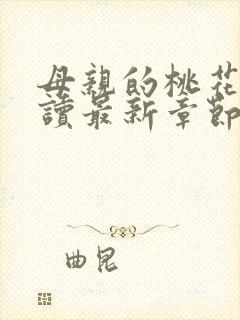 母親的桃花
讀最新章節
曲昆